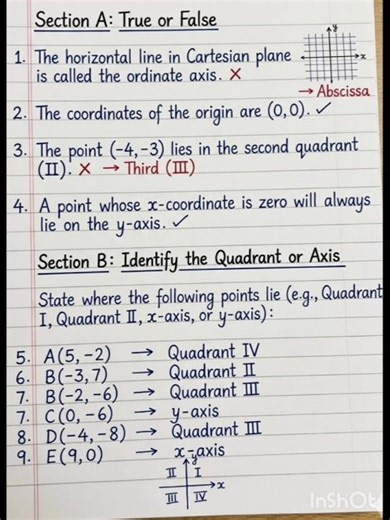 Section A: True or False
y
1. The horizontal line in Cartesian plane
x
is called the ordinate axis. ✗
→ Abscissa
2. The coordinates of the origin are (0,0). ✓
3. The point (-4,-3) lies in the second quadrant
(II). ✗ → Third (III)
4. A point whose x-coordinate is zero will always
lie on the y-axis. ✓
Section B: Identify the Quadrant or Axis
State where the following points lie (e.g., Quadrant
I, Quadrant II, x-axis, or y-axis):
5. A(5,-2) → Quadrant IV
6. B(-3,7) → Quadrant II
7. B(-2,-6) → Quadrant III
7. C(0,-6) → y-axis
8. D(-4,-8) → Quadrant III
9. E(9,0) → x-axis
y
II I
x
III IV
InShOt